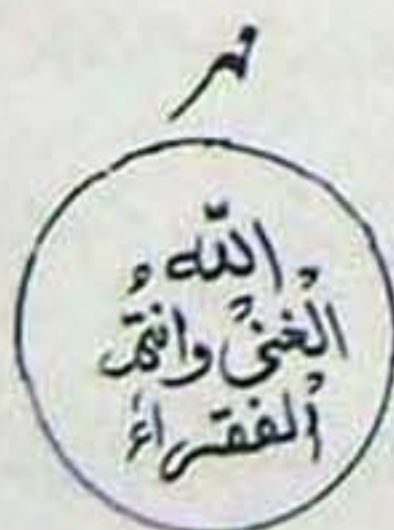 مهر
الله
الغنی وانتم
الفقراء